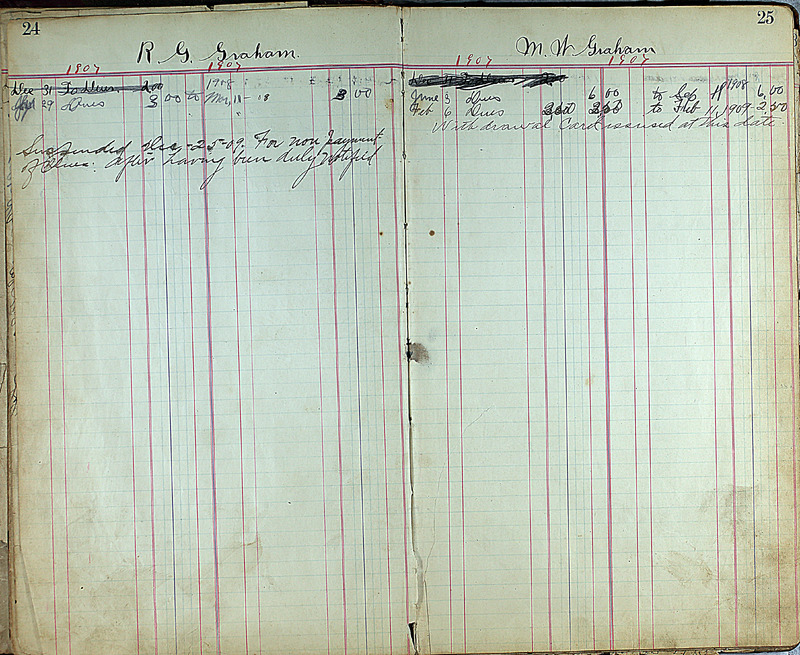 24
R. G. Graham.
1907 1907
Dec 31 To Dues 200
1908
29 Dues 3 00 to Mar, 11 - 08 3 00
Suspended Dec - 25-09. For non payment
of Dues. after having been duly notified
25
M. W Graham
1907 1907
June 3 Dues 6 00 to Sep 11 1908 6,00
Feb 6 Dues 250 250 to Feb 11, 1909 2 50
With drawal Card issused at this date